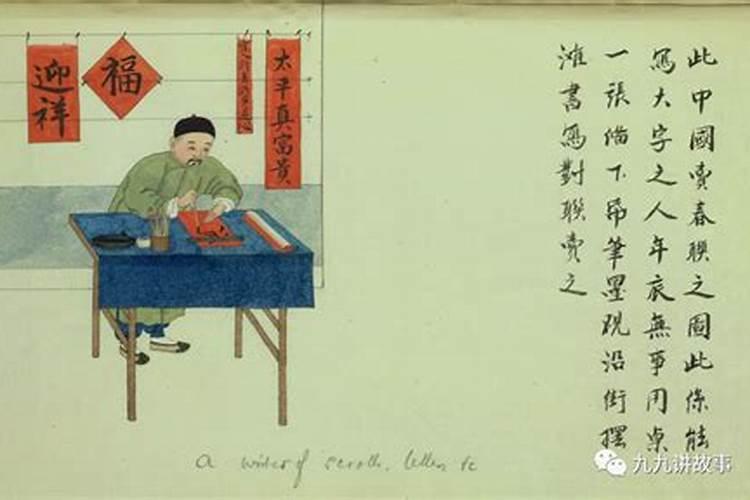 此中國賣春聯之圖此係能
寫大字之人年底無事用桌
一張俻下帋筆墨硯沿街擺
滩書寫對聯賣之
太平真富貴
福
迎祥
A writer of scrolls, letters &c
九九讲故事